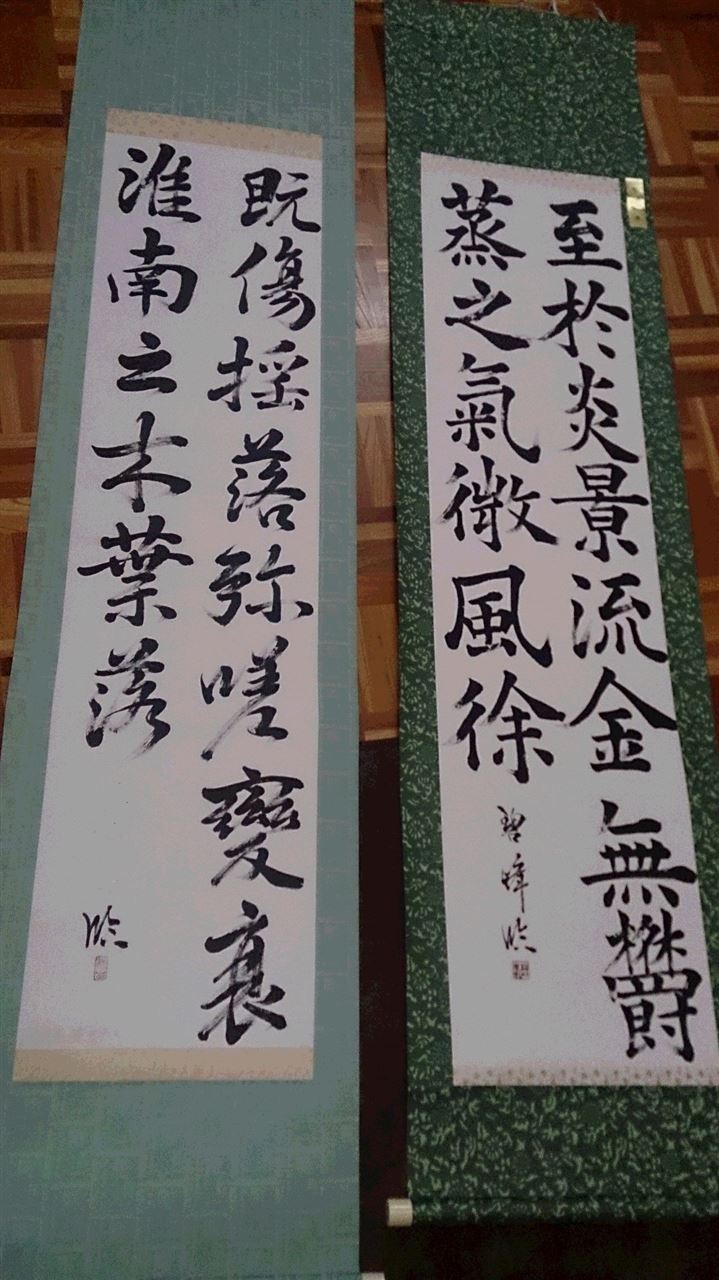 至於炎景流金無欝
蒸之氣微風徐
臨
既傷揺落弥嗟變衰
淮南云木葉落
臨